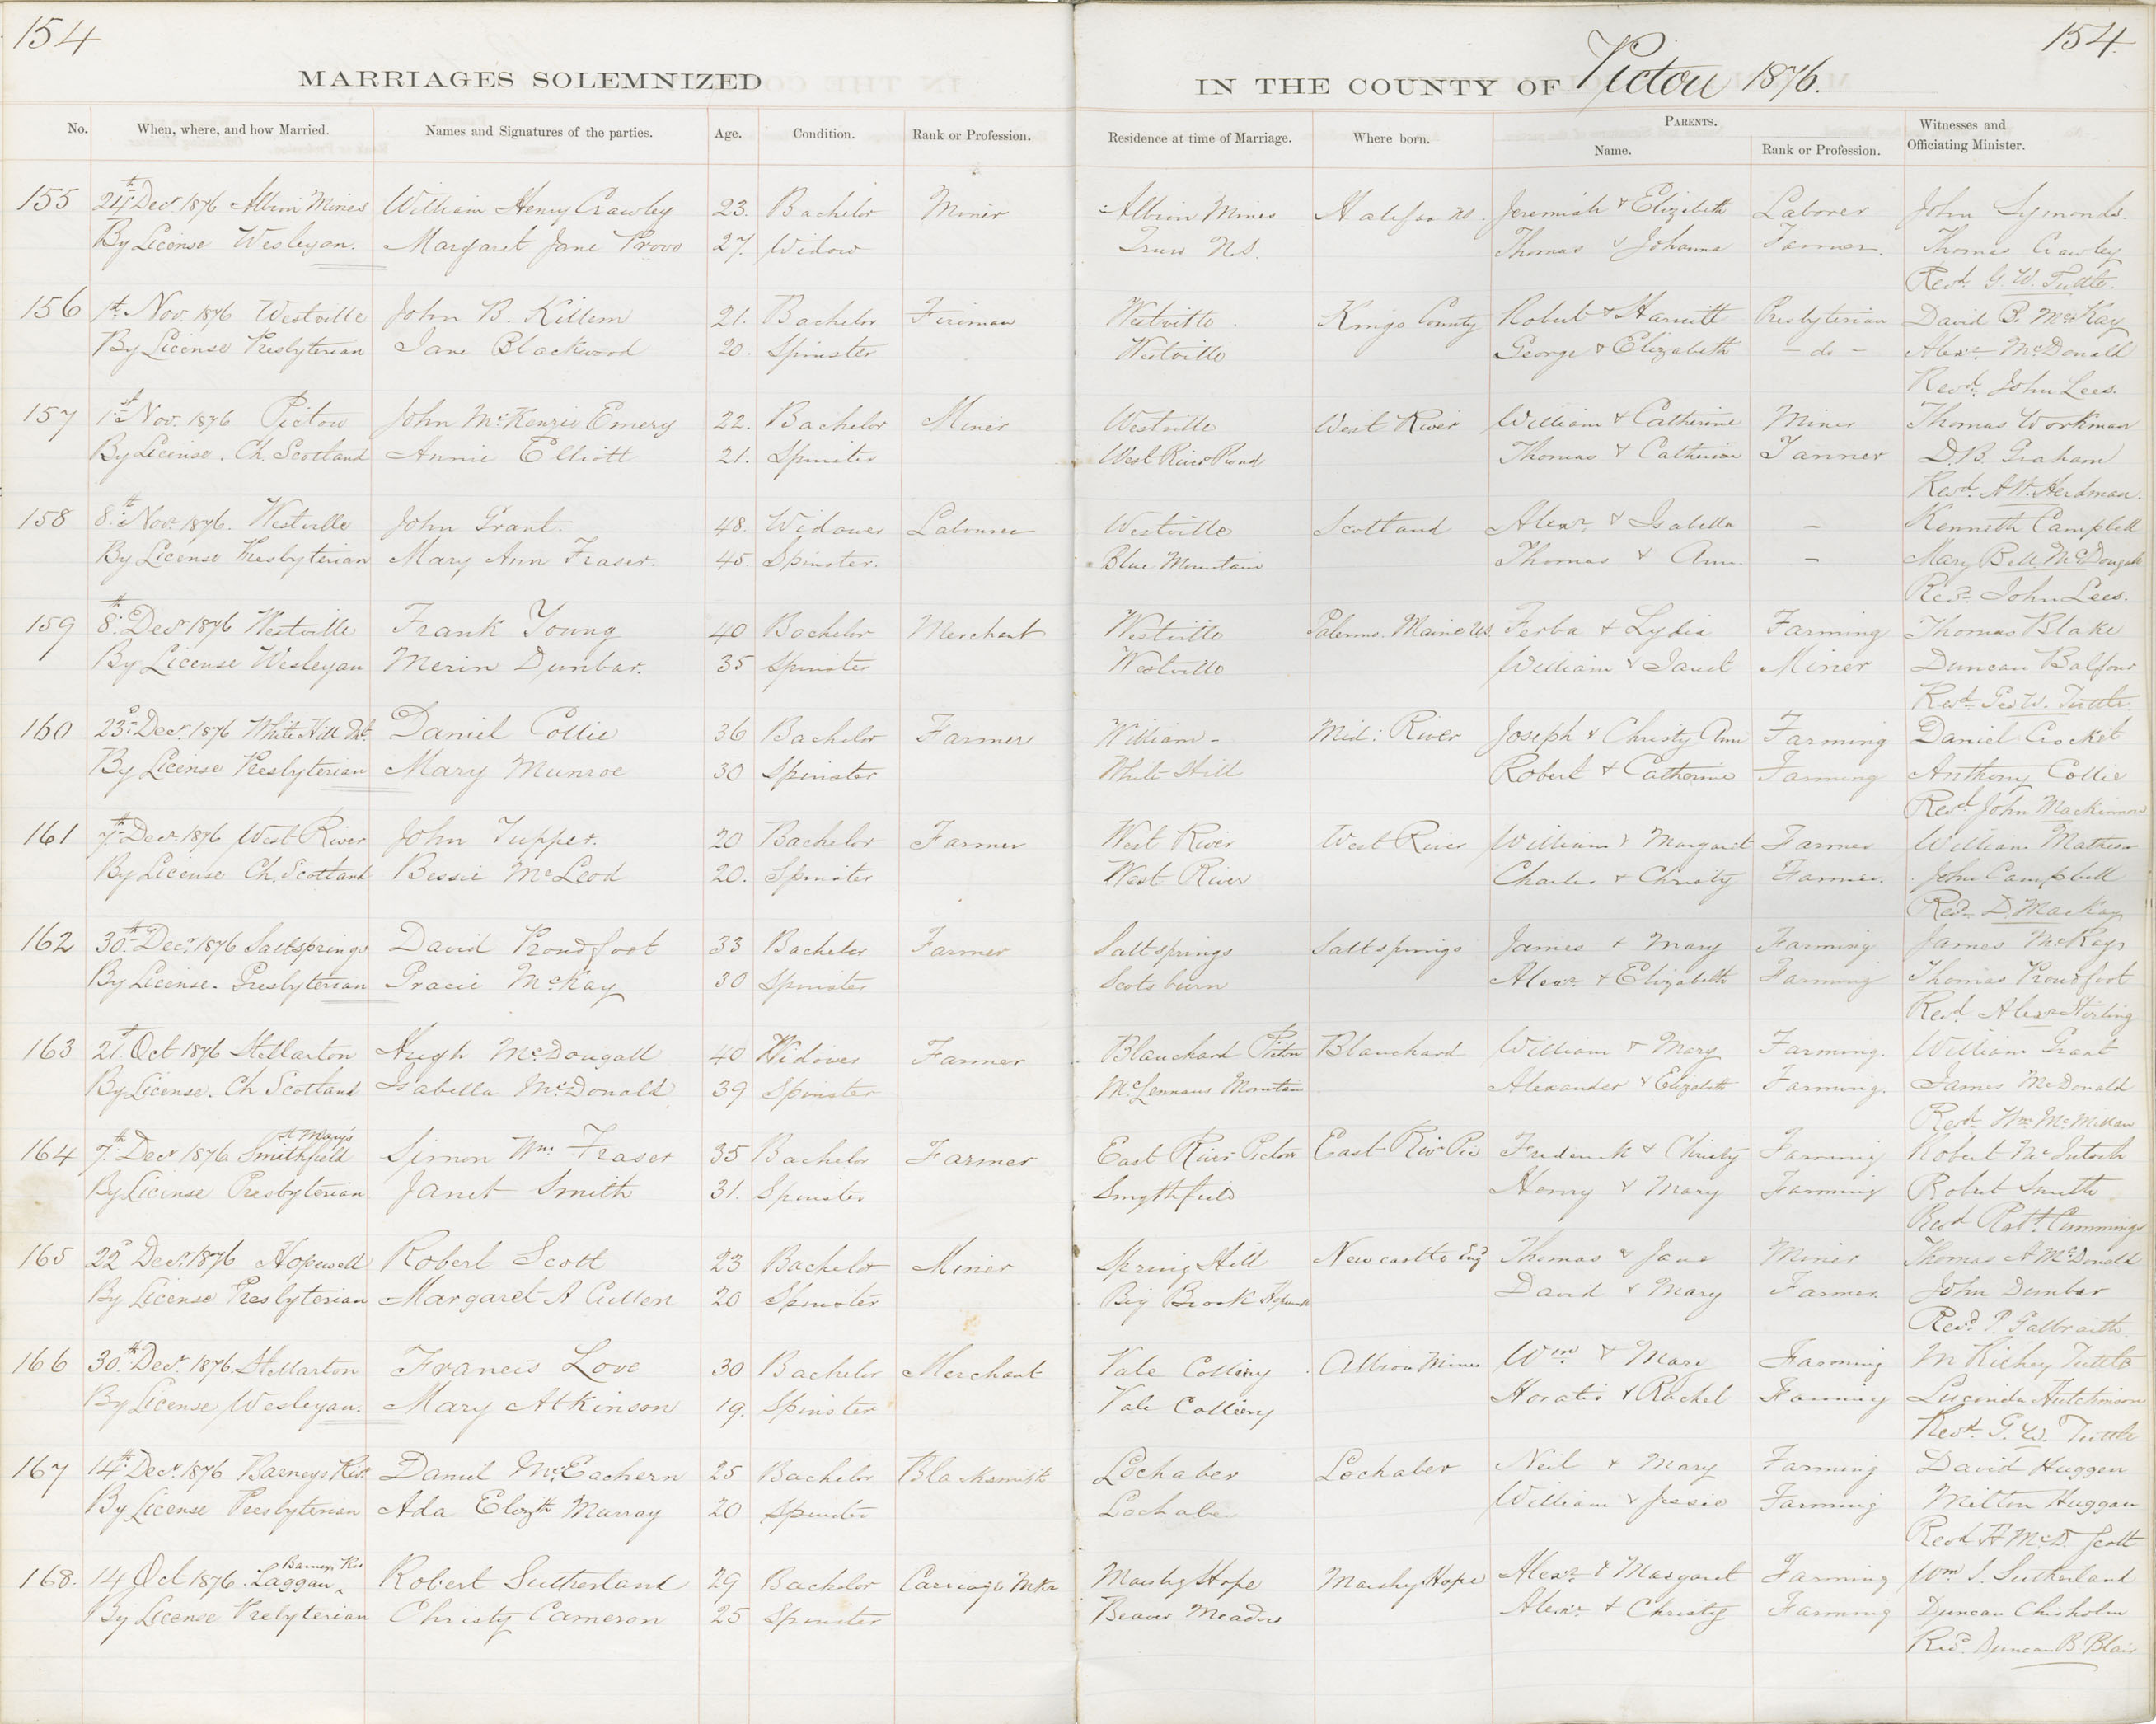 154
154
MARRIAGES SOLEMNIZED
IN THE COUNTY OF Pictou 1876.
No. When, where, and how Married. Names and Signatures of the parties. Age. Condition. Rank or Profession. Residence at time of Marriage. Where born. PARENTS. Name. Rank or Profession. Witnesses and Officiating Minister.
155 24th Decr 1876 Albion Mines William Henry Crawley 23. Bachelor Miner Albion Mines Halifax NS. Jeremiah & Elizibeth Laborer John Symonds.
By License Wesleyan. Margaret Jane Provo 27. Widow Truro N.S. Thomas & Johanna Farmer. Thomas Crawley
Revd. G. W. Tuttle.
156 1st. Nov. 1876 Westville John B. Killem 21. Bachelor Fireman Westville. Kings County Robert & Harriett Presbyterian David B. McKay
By License Presbyterian Jane Blackwood 20. Spinster Westville George & Elizabeth - do - Alexr McDonald
Revd. John Lees.
157 1st Nov. 1876 Pictou John McKenzie Emery 22. Bachelor Miner Westville West River William & Catherine Miner Thomas Workman
By License. Ch. Scotland Annie Elliott 21. Spinster West River Road Thomas & Catherine Tanner D.B. Graham
Revd. A.W. Herdman.
158 8th Nov. 1876. Westville John Grant. 48. Widower Labourer Westville Scotland Alexr & Isabella - Kenneth Campbell
By License Presbyterian Mary Ann Fraser. 45. Spinster. Blue Mountain Thomas & Ann. - Mary Bell McDougall
Revd. John Lees.
159 8th Decr 1876 Westville Frank Young 40 Bachelor Merchant Westville Palermo. Maine US. Ferba & Lydia Farming Thomas Blake
By License Wesleyan Merin Dunbar. 35 Spinster Westville William & Janet Miner Duncan Balfour
Revd. Geo W. Tuttle.
160 23d Decr. 1876 White Hill Pict. Daniel Collie 36 Bachelor Farmer William - Mid: River Joseph & Christy Ann Farming Daniel Crocket
By License Presbyterian Mary Munroe 30 Spinster White Hill Robert & Catherine Farming Anthony Collie
Revd John Mackinnon
161 7th Decr 1876 West River John Tupper. 20 Bachelor Farmer West River West River William & Margaret Farmer William Matheson
By License Ch. Scotland Bessie McLeod 20. Spinster West River Charles & Christy Farmer. John Campbell
Revd. D. MacKay
162 30th Decr. 1876 Saltsprings David Proudfoot 33 Bachelor Farmer Saltsprings Saltsprings James & Mary Farming. James McKay
By License. Presbyterian Gracie McKay 30 Spinster Scotsburn Alexr & Elizabeth Farming Thomas Proudfoot
Revd Alexr Stirling
163 21st Oct 1876 Stellarton Hugh McDougall 40 Widower Farmer Blanchard Pictou Blanchard William & Mary Farming. William Grant
By License. Ch Scotland Isabella McDonald 39 Spinster McLennans Mountain Alexander & Elizabeth Farming. James McDonald
Revd. Wm McMillan
164 7th Decr 1876 Smithfield St Mary's Simon Wm Fraser 35 Bachelor Farmer East River Pictou East Rivr Pic Frederick & Christy Farming Robert McIntosh
By License Presbyterian Janet Smith 31. Spinster Smythfield Henry & Mary Farming Robert Smith
Revd Robt. Cummings
165 22d Decr. 1876 Hopewell Robert Scott 23 Bachelor Miner Spring Hill Newcastle Engd Thomas & Jane Miner Thomas A McDonald
By License Presbyterian Margaret A Cullen 20 Spinster Big Brook Hopewell David & Mary Farmer. John Dunbar
Revd. P. Galbraith.
166 30th Decr. 1876 Stellarton Francis Love 30 Bachelor Merchant Vale Colliery Albion Mines Wm & Mary Farming M Richey Tuttle
By License Wesleyan. Mary Atkinson 19. Spinster Vale Colliery Horatio & Rachel Farming Lucinda Hutchinson
Revd. G. W. Tuttle
167 14th Decr. 1876 Barneys Rivr. Daniel McEachern 25 Bachelor Blacksmith Lochaber Lochaber Neil & Mary Farming David Huggan
By License Presbyterian Ada Elizth Murray 20 Spinster Lochaber William & Jessie Farming Milton Huggan
Revd. H McD. Scott
168. 14 Oct 1876. Laggan, Barneys Riv Robert Sutherland 29 Bachelor Carriage Mkr Marshy Hope Marshy Hope Alexr & Margaret Farming Wm S. Sutherland
By License Presbyterian Christy Cameron 25 Spinster Beaver Meadow Alexr & Christy Farming Duncan Chisholm
Revd. Duncan B Blair